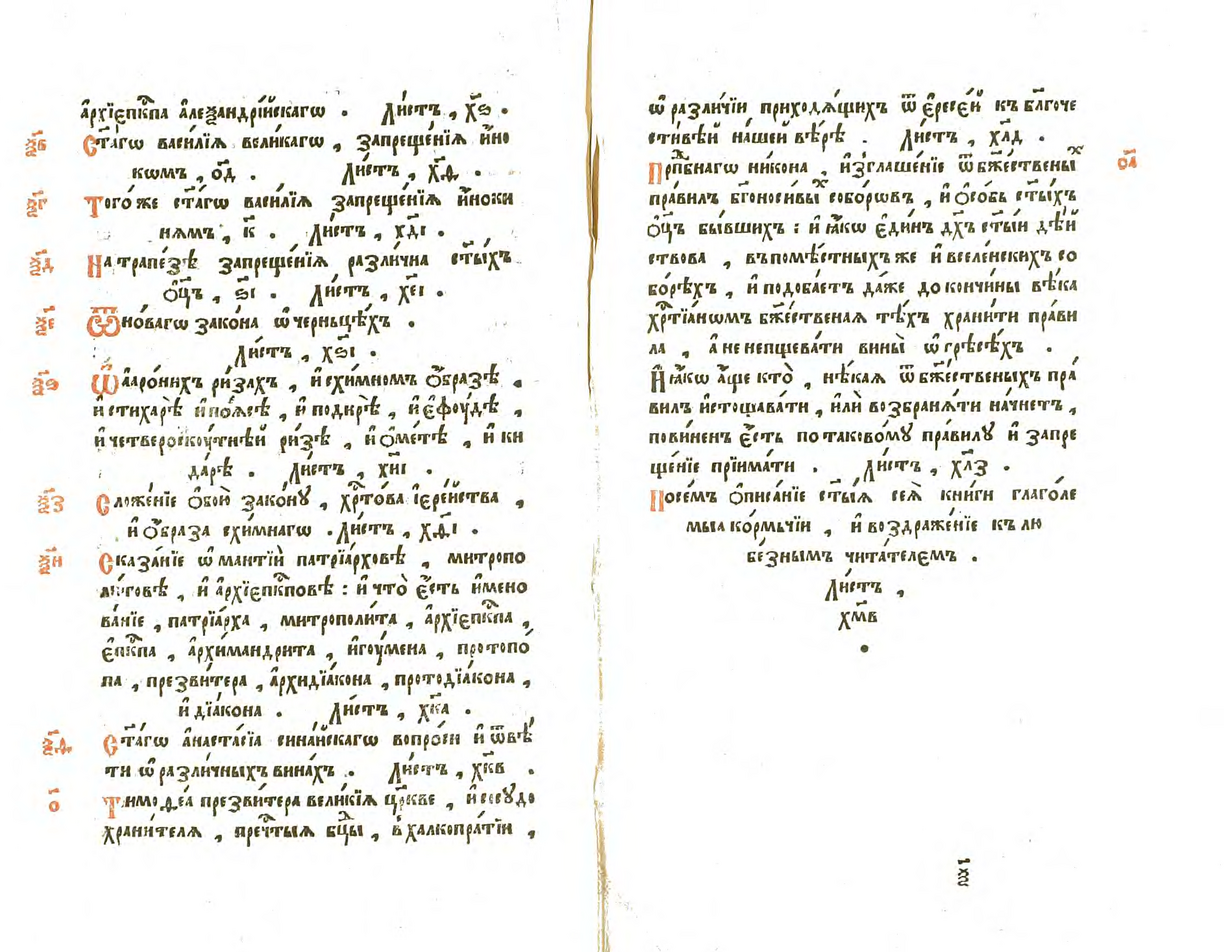 а҆рхїєпⷭ҇кпа а҆леѯандрі́йскагѡ . Ли́стъ , хѕ҃ .
ѯ҃в
Ст҃а́гѡ васи́лїѧ вели́кагѡ , запреще́нїѧ и҆но
кѡмъ , о҃д . Ли́стъ , хѳ҃ .
ѯ҃г
Того́же ст҃а́гѡ васи́лїѧ запреще́нїѧ и҆ноки
нѧмъ , к҃ . Ли́стъ , хд҃і .
ѯ҃д
На трапе́зѣ запреще́нїѧ разли́чна ст҃ы́хъ
ѻ҆ц҃ъ , ѕ҃і . Ли́стъ , хе҃і .
ѯ҃е
Ѿ но́вагѡ зако́на ѡ҆ черньцѣ́хъ .
Ли́стъ , хѕ҃і .
ѯ҃ѕ
Ѡ҆ а҆аро́нихъ ри́захъ , и҆ схи́мномъ ѻ҆́бразѣ .
и҆ стиха́рѣ и҆ по́ѧсѣ , и҆ подкрѣ̀ , и҆ є҆фоу́дѣ ,
и҆ четвероскоу́тнѣй ри́зѣ , и҆ ѻ҆ме́тѣ , и҆ ки
да́рѣ . Ли́стъ , хи҃і .
ѯ҃з
Сложе́нїе ѻ҆бои̇̀ зако́нꙋ , хрⷭ҇то́ва і҆ере́йства ,
и҆ ѻ҆́браза схи́мнагѡ . Ли́стъ , хѳ҃і .
ѯ҃и
Сказа́нїе ѡ҆ манті́й патрїа́рховѣ , митропо
ли́товѣ , и҆ а҆рхїєпⷭ҇кповѣ : и҆ что̀ є҆́сть и҆мено
ва́нїе , патрїа́рха , митрополи́та , а҆рхїєпⷭ҇кпа ,
є҆пⷭ҇кпа , а҆рхима́ндрита , и҆гоу́мена , протопо́
па , презви́тера , а҆рхидїа́кона , протодїа́кона ,
и҆ дїа́кона . Ли́стъ , хк҃а .
ѯ҃ѳ
Ст҃а́гѡ а҆наста́сїа сина́йскагѡ вопро́си и҆ ѿвѣ́
ти ѡ҆ разли́чныхъ вина́хъ . Ли́стъ , хк҃в .
о҃
Тимоѳе́а презви́тера вели́кїѧ цр҃кве , и҆ ссудо
храни́телѧ , преч҃тыѧ бц҃ы , в҆ халкопра́тїи ,
ѡ҆ разли́чїи приходѧ́щихъ ѿ є҆ресе́й къ бл҃гоче
сти́вѣй на́шей вѣ́рѣ . Ли́стъ , хл҃д .
о҃а
Прпⷣбнагѡ ни́кона , и҆зглаше́нїе ѿ бж҃ественыⷯ
пра́вилъ бг҃оноси́выⷯ собо́рѡвъ , и҆ ѻ҆со́бь ст҃ы́хъ
ѻ҆ц҃ъ бы́вшихъ : и҆ ꙗ҆́кѡ є҆ди́нъ дх҃ъ ст҃ы́и дѣ́й
ствова , въ помѣ́стныхъ же и҆ вселе́нскихъ со
бо́рѣхъ , и҆ подоба́етъ да́же до кончи́ны вѣ́ка
хрⷭ҇тїа́нѡмъ бж҃е́ственаѧ тѣ́хъ храни́ти пра́ви
ла , а҆ не непщева́ти вины̀ ѡ҆ грѣсѣ́хъ .
И҆ ꙗ҆́кѡ а҆́ще кто̀ , нѣ́каѧ ѿ бж҃е́ственыхъ пра́
вилъ и҆стощава́ти , и҆лѝ возбранѧ́ти на́чнетъ ,
пови́ненъ є҆́сть по тако́вомꙋ пра́вилꙋ и҆ запре
ще́нїе прїима́ти . Ли́стъ , хл҃з .
Посе́мъ ѻ҆писа́нїе ст҃ы́ѧ сеѧ̀ кни́ги глаго́ле
мыа ко́рмьчїи , и҆ воздраже́нїе къ лю
бе́знымъ чита́телемъ .
Ли́стъ ,
хм҃в
.
ѯ҃